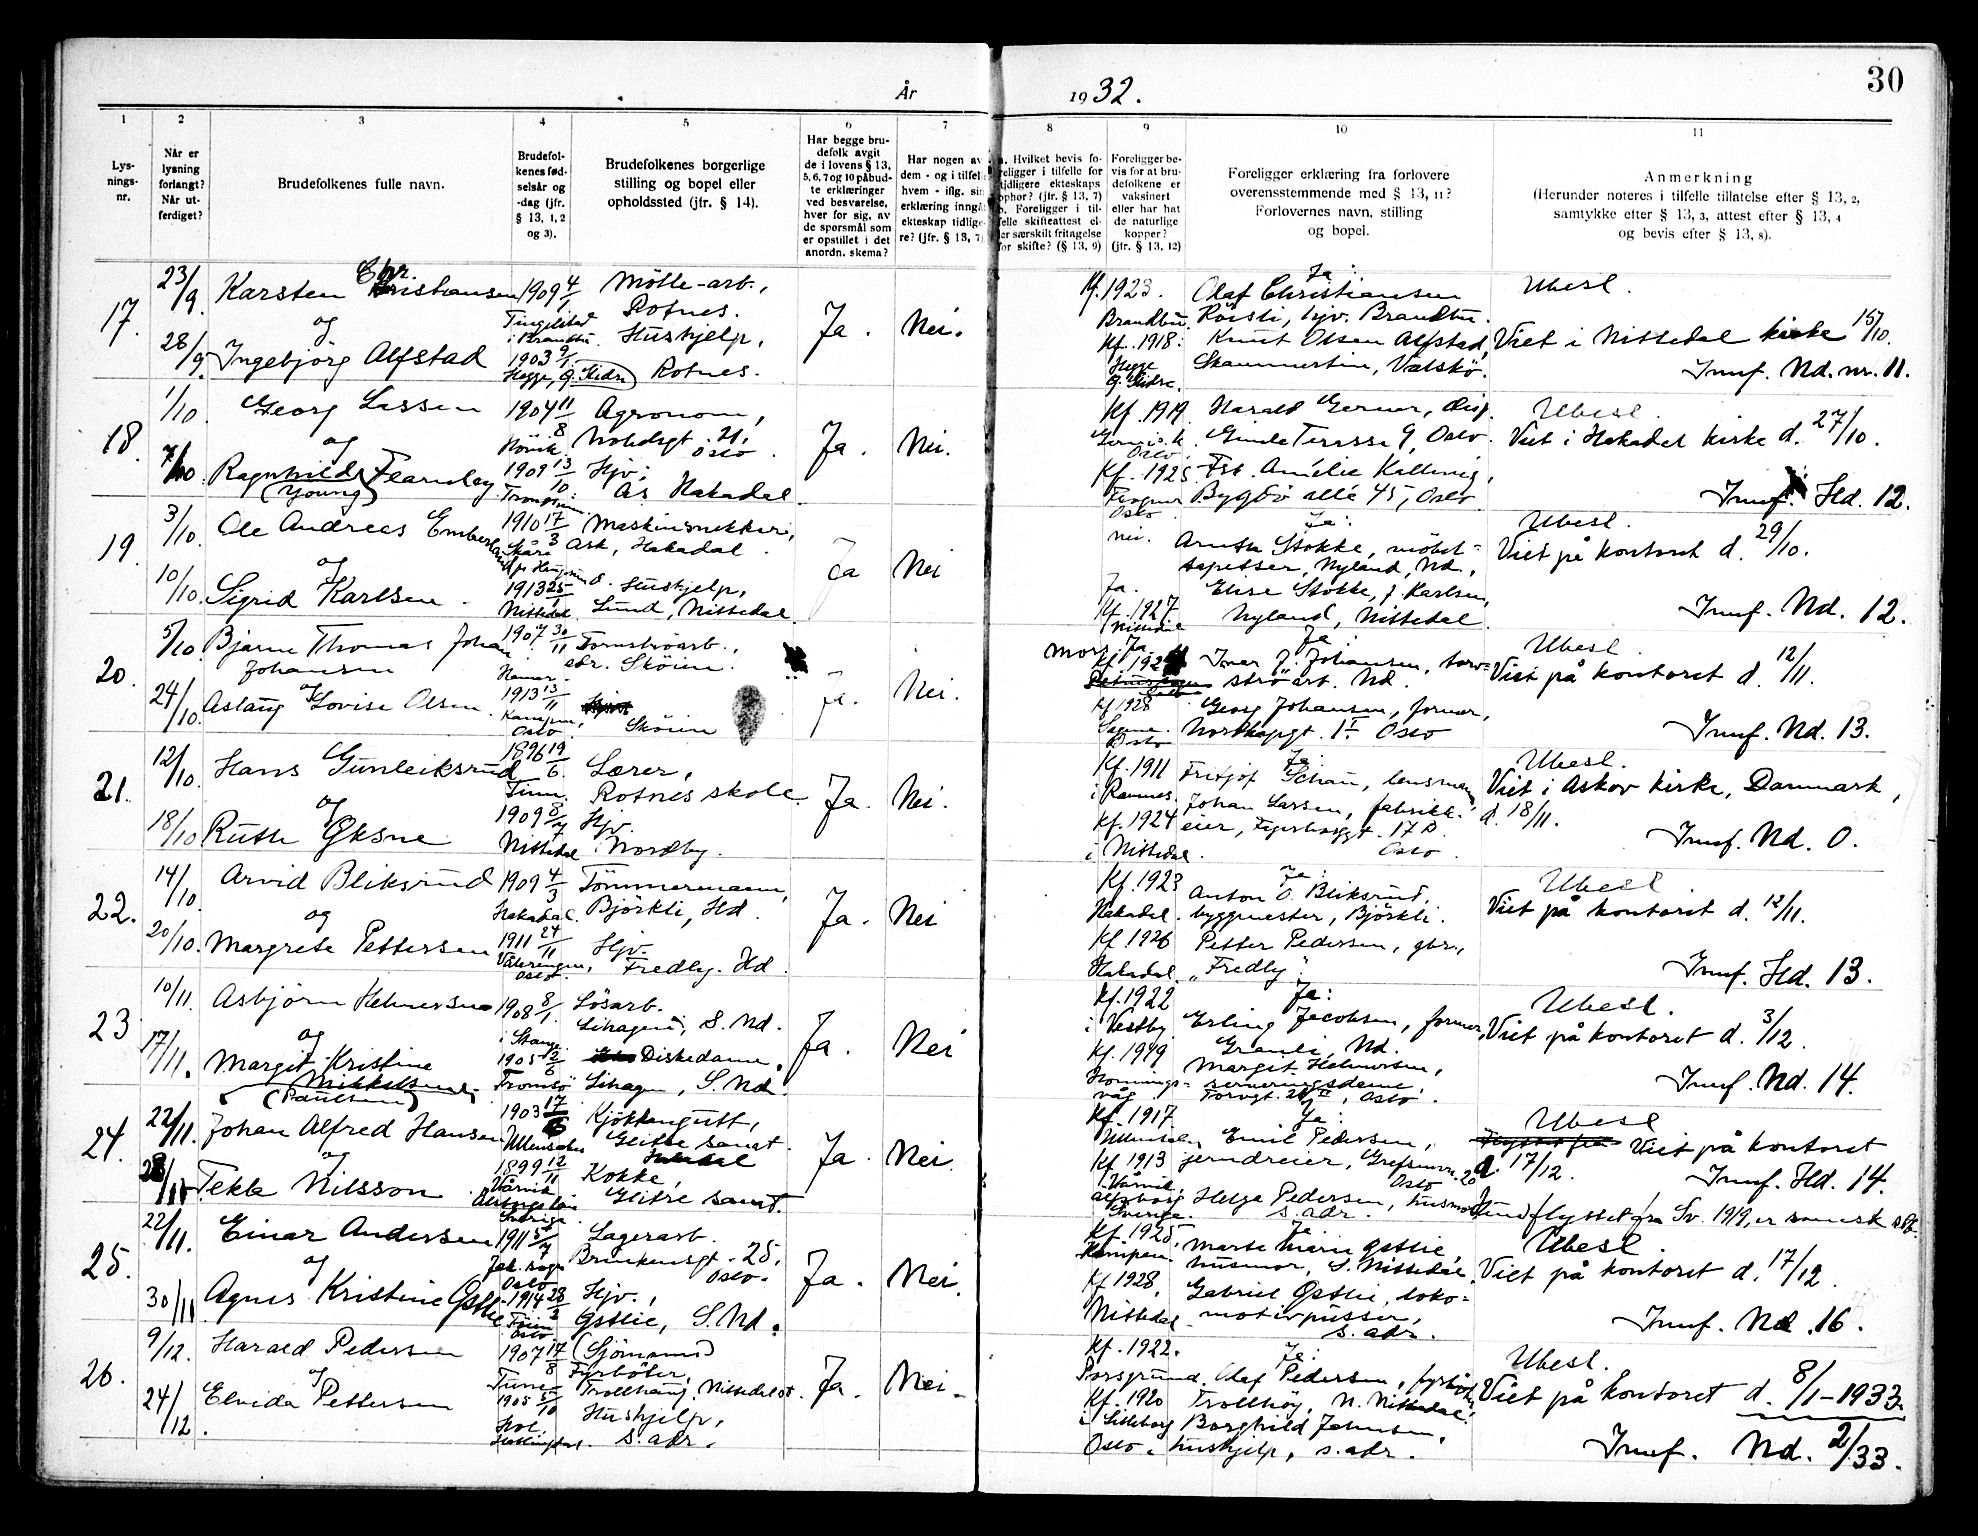 30
År 1932.
1
Lys-
nings-
nr.
2
Når er
lysning
forlangt?
Når ut-
ferdiget?
3
Brudefolkenes fulle navn.
4
Brudefol-
kenes fød-
selsår og
-dag (jfr.
§ 13, 1, 2
og 3).
5
Brudefolkenes borgerlige
stilling og bopel eller
opholdssted (jfr. § 14).
6
Har begge bru-
defolk avgit
de i lovens § 13,
5, 6, 7 og 10 påbud-
te erklæringer
ved besvarelse,
hver for sig, av
de spørsmål som
er opstillet i det
anordn. skema?
7
Har nogen av
dem - og i tilfell
hvem - iflg. sin
erklæring inngå
ekteskap tidlige
re? (jfr. § 13, 7)
8
a. Hvilket bevis fo-
religger i tilfelle for
tidligere ekteskaps
ophør? (jfr. § 13, 7)
b. Foreligger i til-
felle skifteattest el-
ler særskilt fritagelse
for skifte? (§ 13, 9)
9
Foreligger be-
vis for at bru-
defolkene er
vaksinert
eller har hat
de naturlige
kopper?
(jfr. § 13, 12)
10
Foreligger erklæring fra forlovere
overensstemmende med § 13, 11?
Forlovernes navn, stilling
og bopel.
11
Anmerkning
(Herunder noteres i tilfelle tillatelse efter § 13, 2,
samtykke efter § 13, 3, attest efter § 13, 4
og bevis efter § 13, 8).
17.
23/9.
28/9.
Karsten Christiansen
og
Ingebjörg Alfstad
1909 4/1
Tingelstad
i Brandbu
1903 9/1
Hegge, Ø. Slidre
Mölle-arb.,
Rotnes.
Hushjelp,
Rotnes.
Ja.
Nei.
Kf. 1923.
Brandbu.
Kf. 1918:
Hegge
Ø. Slidre.
Ja:
Olaf Christiansen
Röisli, Brandbu.
Knut Olsen Alfstad,
Ubesl.
Viet i Nittedal kirke 15/10.
Innf. Nd. nr. 11.
18.
1/10.
7/10
Georg Lassen
og
Ragnhild Fearnley
(Young)
1904 11/8
Hövik
1909 13/10
Agronom,
Oslo
Hjv.
Ås Hakadal.
Ja.
Nei.
Kf. 1919
Oslo
Kf. 1925
Frogner
Oslo
Harald Gerner, disp.
Terrasse 9, Oslo.
Frk. Amélie
Bygdö allé 45, Oslo
Ubesl.
Viet i Hakadal kirke d. 27/10.
Innf. Hd. 12.
19.
3/10.
10/10.
Ole Andreas Emberland
og
Sigrid Karlsen.
1910 17/3
1913 25/1
Nittedal
Maskinsnekker,
Ask, Hakadal.
Hushjelp,
Lund, Nittedal.
Ja
Nei
nei.
Ja.
Kf. 1927
Nittedal
Ja:
Stokke, möbel-
tapetser, Nyland, Nd.,
Elise Stokke, f. Karlsen,
Nyland, Nittedal.
Ubesl.
Viet på kontoret d. 29/10.
Innf. Nd. 12.
20.
5/10.
24/10.
Bjarne Thomas Johan
Johansen
og
Aslaug Lovise Olsen.
1907 30/11
Hamar.
1913 13/11
Kampen,
Oslo
Torvströarb.,
adr. Sköien.
Sköien
Ja.
Nei.
Kf. 1928
Oslo
Ja
Ivar J. Johansen, torv-
strö arb. Nd.
Georg Johansen, former,
Oslo
Ubesl.
Viet på kontoret d. 12/11.
Innf. Nd. 13.
21.
12/10.
18/10
Hans Gunleiksrud
og
Ruth Öksne
1896 19/6.
Tinn.
1909 8/7
Nittedal
Lærer,
Rotnes skole.
Hjv.
Nordby.
Ja.
Nei.
Kf. 1911
Kf. 1924
i Nittedal.
Ja:
Fritjof Schau, lensmann
Johan Larsen, fabrikk-
eier, 17 B.
Oslo.
Ubesl.
Viet i Askov kirke, Danmark,
d. 18/11.
Innf. Nd. 0.
22.
14/10.
20/10.
Arvid Bliksrud
og
Margrete Pettersen
1909 4/3
Hakadal.
1911 24/11
Vålerengen,
Oslo.
Tömmermann,
Björkli, Hd.
Hjv.
Fredly. Hd.
Ja.
Nei
Kf. 1923
Hakadal.
Kf. 1926
Hakadal
Ja:
Anton O. Bliksrud,
byggmester, Björkli.
Petter Pedersen, gbr.,
"Fredly".
Ubesl.
Viet på kontoret d. 12/11.
Innf. Hd. 13.
23
10/11.
17/11.
Asbjörn Helmersen
og
Margit Kristine
Mikkelsen
(Paulsen)
1908 8/1.
i Stange.
1905 12/6
Tromsö
Lösarb.
Lihagen, S. Nd.
Diskedame,
Lihagen, S. Nd.
Ja.
Nei
Kf. 1922
i Vestby
Kf. 1919
Honnings-
våg
Ja:
Erling Jacobsen, former,
Granli, Nd.
Margit Helmersen,
serveringsdame,
Torvgt. Oslo.
Ubesl.
Viet på kontoret d. 3/12.
Innf. Nd. 14.
24.
22/11.
28/11
Johan Alfred Hansen
og
Tekla Nilsson
1903 17/6
Ullensaker
1899 12/11
Sverige.
Kjökkengutt,
Glitre sanat.
Hakadal
Kokke,
Glitre sanat.
Ja.
Nei.
Kf. 1917
Ullensaker
Kf. 1913
Sverige.
Ja:
Emil Pedersen,
jerndreier, Grefsenvn. 20
Oslo
Helga Pedersen, husmor
s. adr.
Ubesl
Viet på kontoret
d. 17/12.
Innf. Hd. 14.
flyttet fra Sv. 1919, er svensk stb.
25.
22/11.
30/11
Einar Andersen
og
Agnes Kristine Østlie
1911 5/7
Oslo
1914 28/3
Oslo
Lagerarb.
Brinkensgt. 25.
Oslo.
Hjv.,
Østlie, S. Nd.
Ja.
Nei.
Kf. 1925,
Kampen.
Kf. 1928,
Nittedal
Ja
Marte Marie Østlie,
husmor, S. Nittedal.
Gabriel Østlie, loko-
motivpusser,
s. adr.
Ubesl.
Viet på kontoret d. 17/12.
Innf. Nd. 16.
26.
9/12.
24/12.
Harald Pedersen
og
Elvida Pettersen
1907 17/8
Tune
1905 5/10
Hol
Hallingdal.
(Sjömann)
Fyrböter,
Trollhaug, Nittedal st.
Hushjelp,
s. adr.
Ja.
Nei.
Kf. 1922.
Porsgrund.
Kf. 1920
Oslo.
Ja:
Olaf Pedersen, fyrböter
Trollhöy, N. Nittedal.
Borghild Johnsen,
hushjelp, s. adr.
Ubesl.
Viet på kontoret d. 8/1-1933.
Innf. Nd. 2/33.